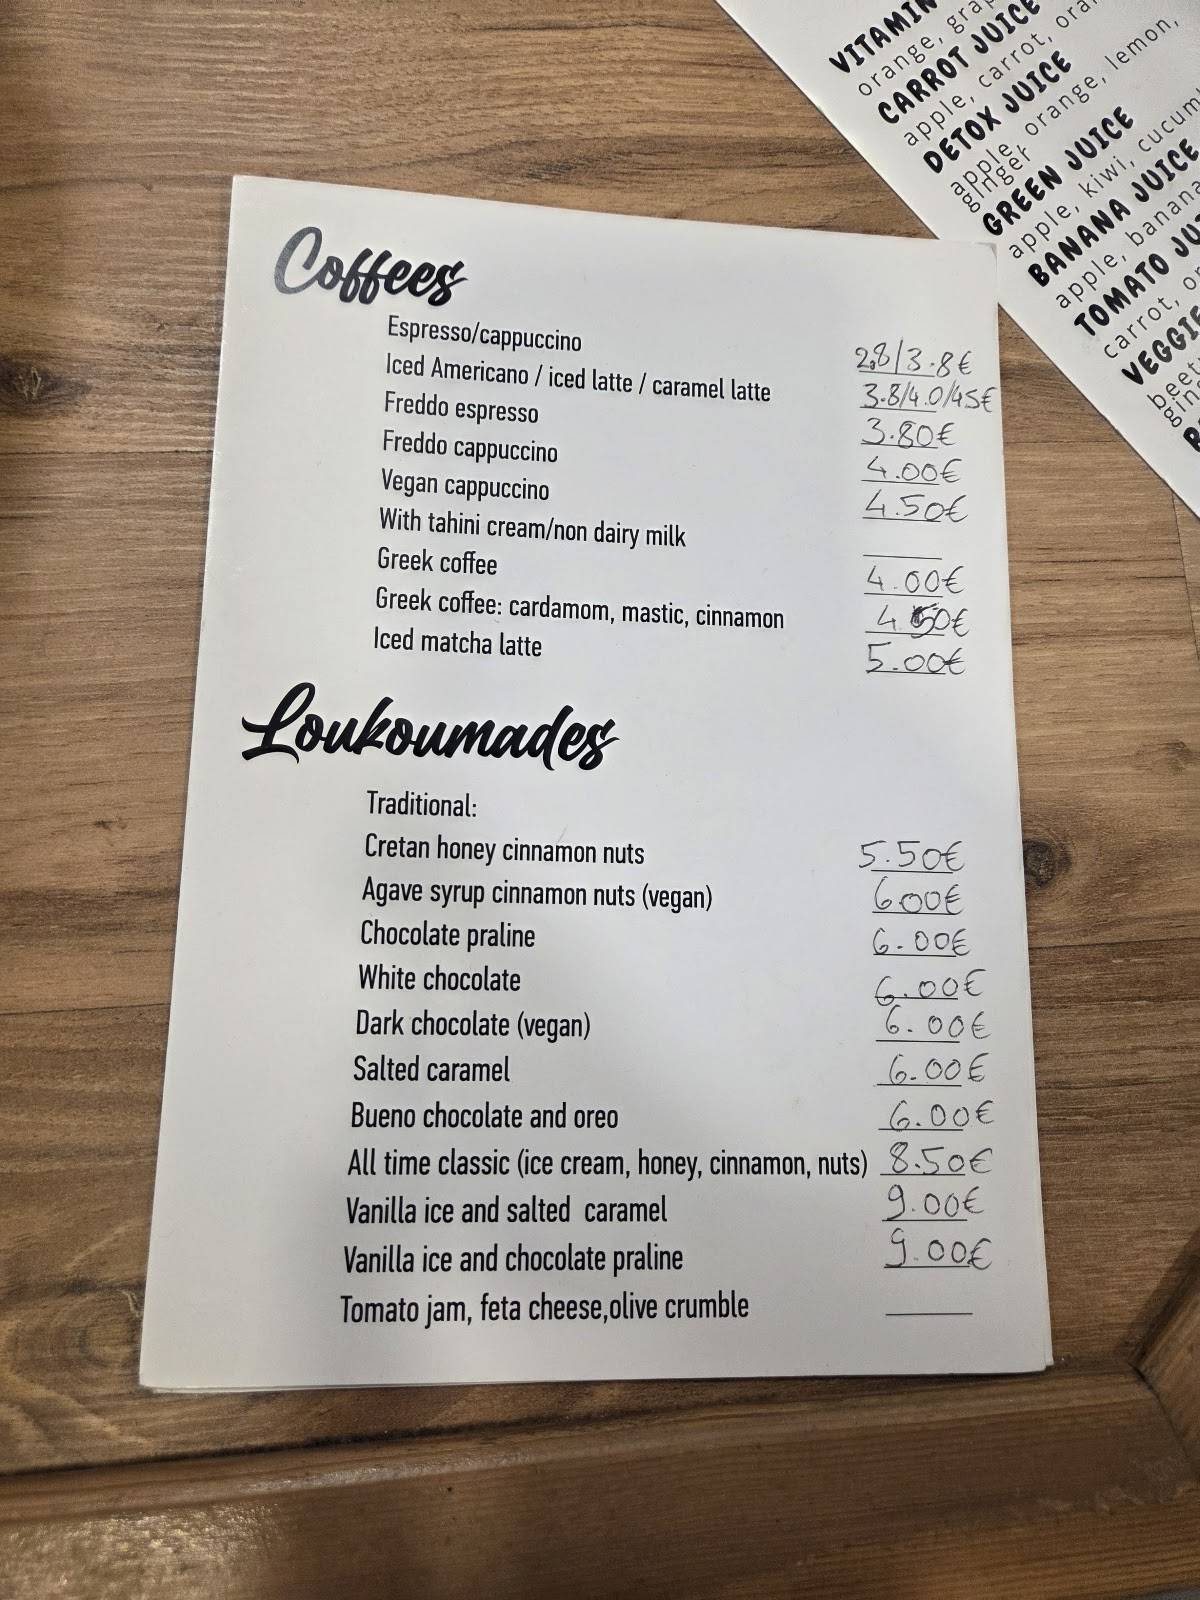 Coffees
Espresso/cappuccino 2,8/3.8€
Iced Americano / iced latte / caramel latte 3.8/4.0/45€
Freddo espresso 3.80€
Freddo cappuccino 4.00€
Vegan cappuccino 4.50€
With tahini cream/non dairy milk
Greek coffee 4.00€
Greek coffee: cardamom, mastic, cinnamon 4.50€
Iced matcha latte 5.00€
Loukoumades
Traditional:
Cretan honey cinnamon nuts 5.50€
Agave syrup cinnamon nuts (vegan) 6.00€
Chocolate praline 6.00€
White chocolate 6.00€
Dark chocolate (vegan) 6.00€
Salted caramel 6.00€
Bueno chocolate and oreo 6.00€
All time classic (ice cream, honey, cinnamon, nuts) 8.50€
Vanilla ice and salted caramel 9.00€
Vanilla ice and chocolate praline 9.00€
Tomato jam, feta cheese,olive crumble
VITAMIN
orange,
CARROT JUICE
apple, carrot,
DETOX JUICE
apple, orange, lemon,
ginger
GREEN JUICE
apple, kiwi,
BANANA JUICE
apple, banana
TOMATO
carrot,